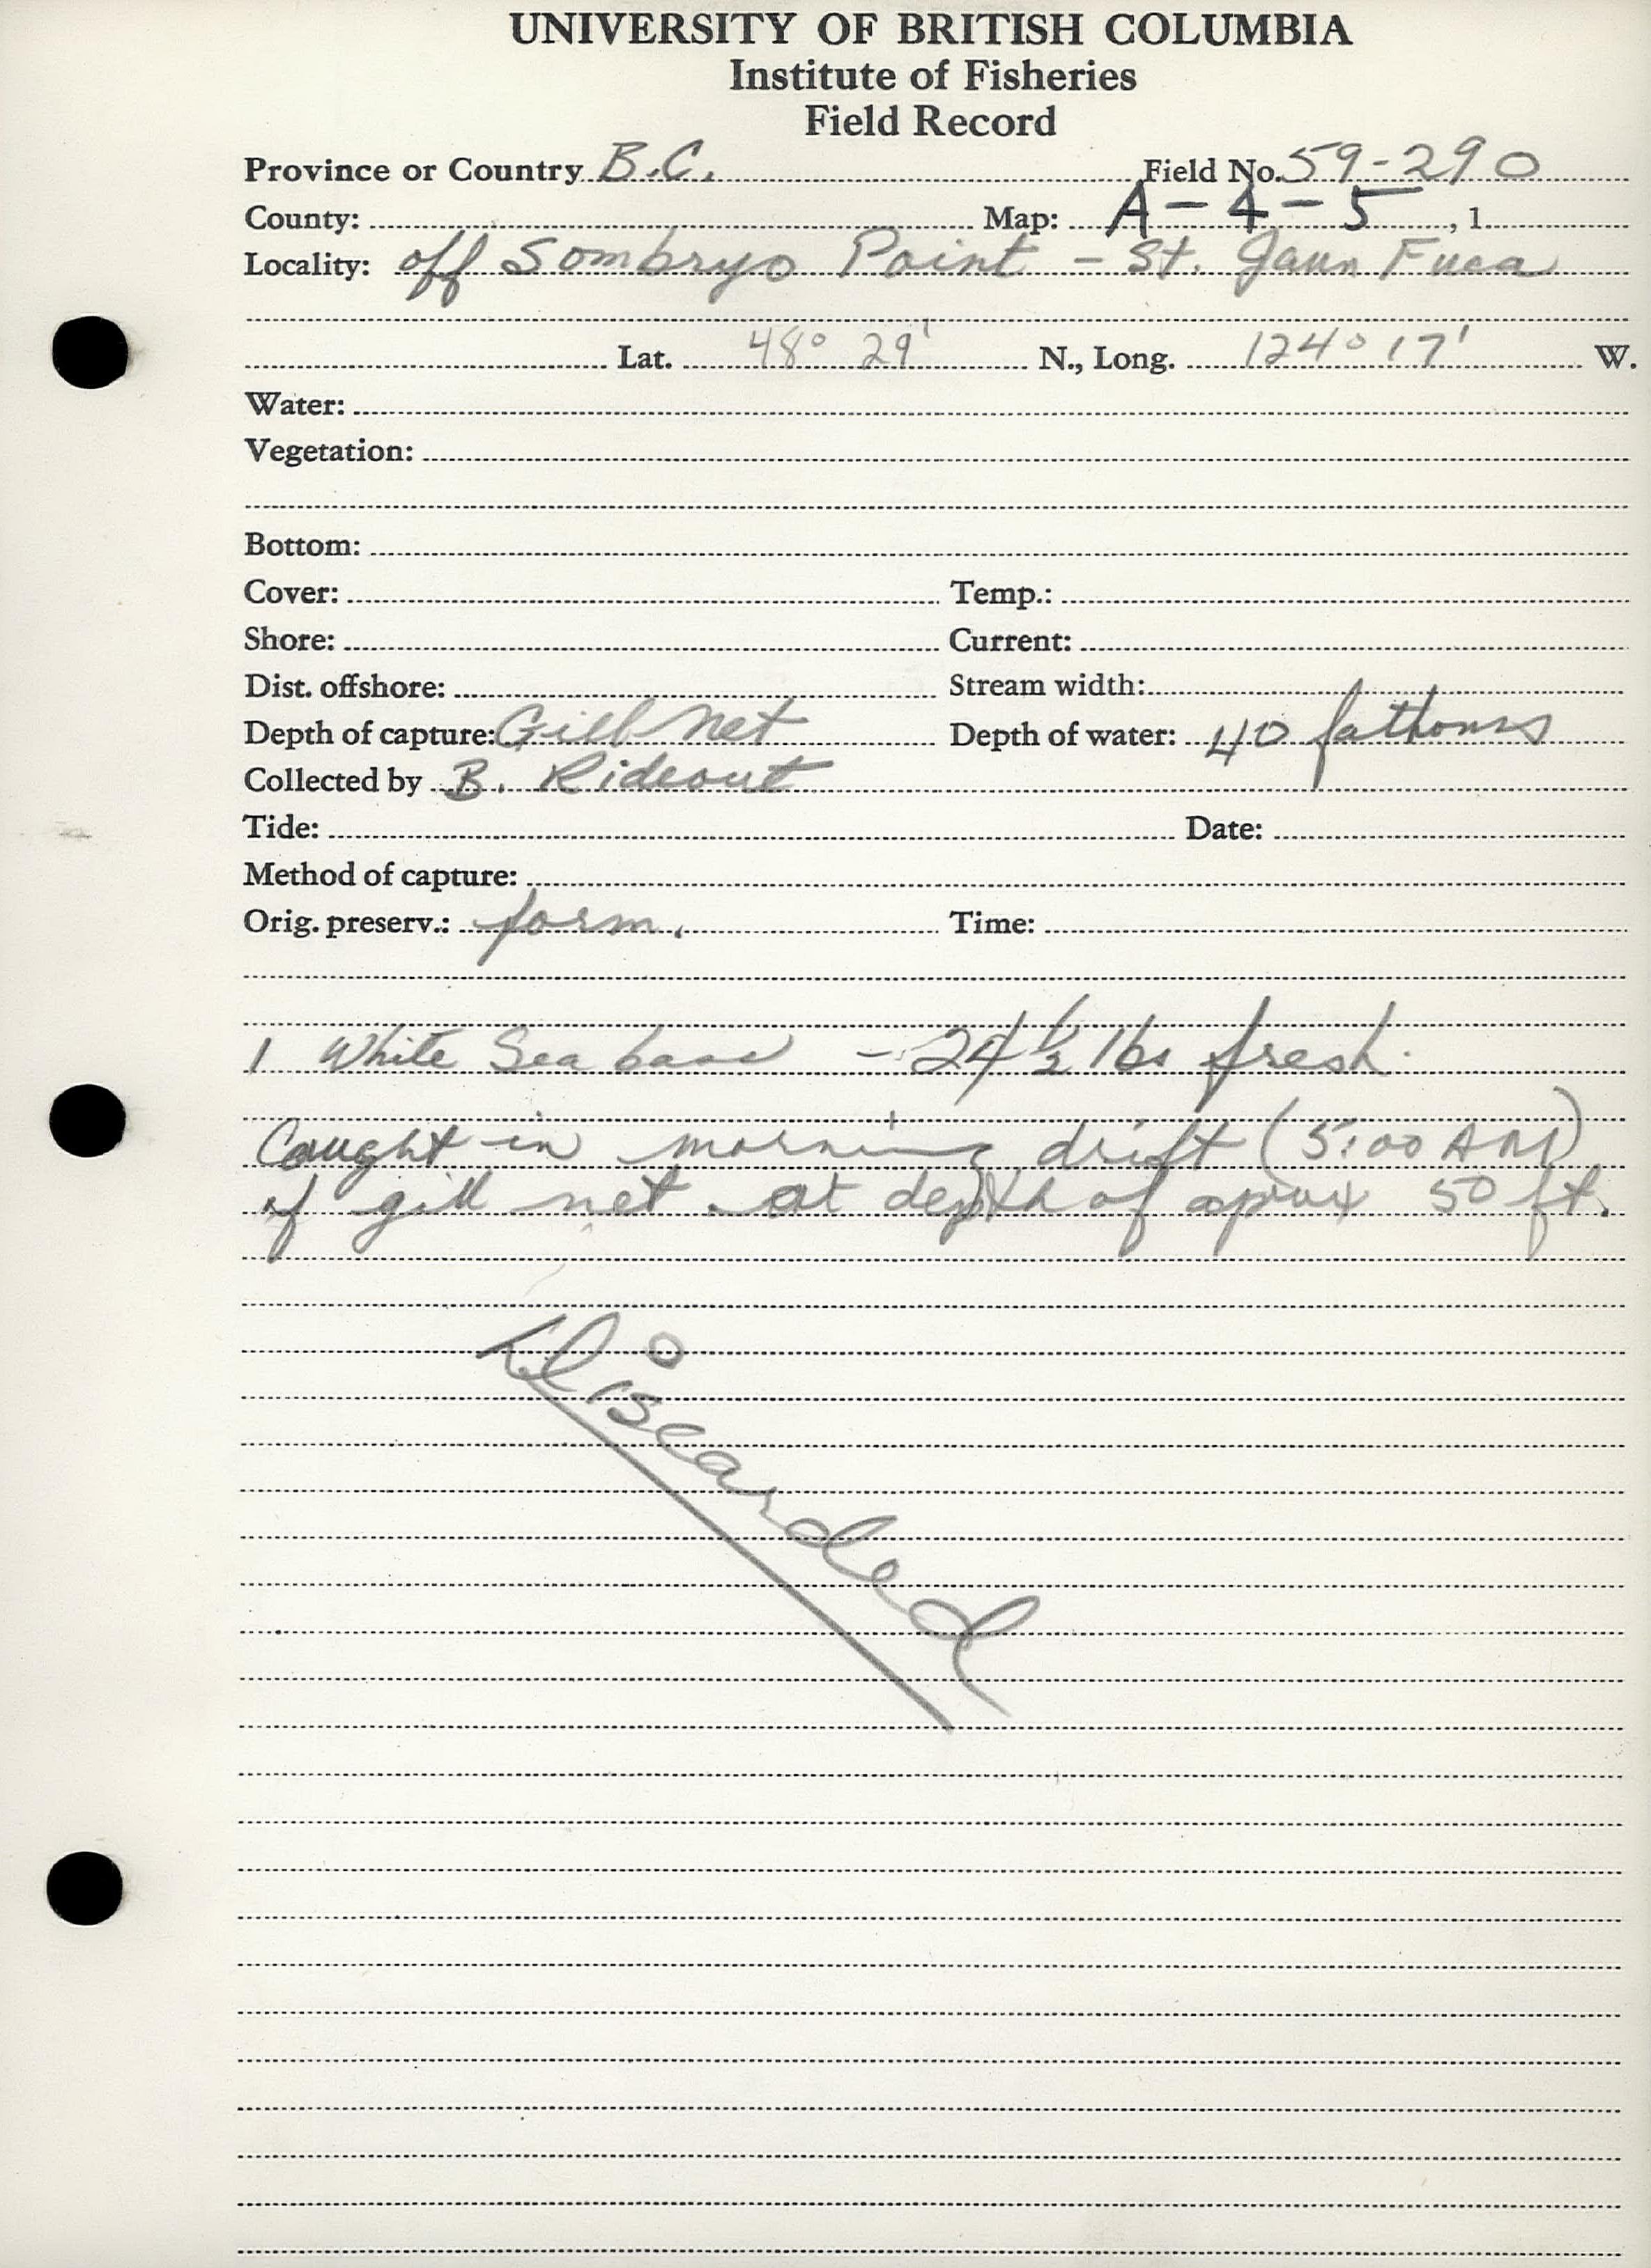 UNIVERSITY OF BRITISH COLUMBIA
Institute of Fisheries
Field Record
Province or Country B.C. Field No. 59-290
County: Map: A-4-5, 1
Locality: off Sombryo Point - St. Jaun Fuca
Lat. 48° 29' N., Long. 124° 17' W.
Water:
Vegetation:
Bottom:
Cover: Temp.:
Shore: Current:
Dist. offshore: Stream width:
Depth of capture: Gill Net Depth of water: 40 fathoms
Collected by B. Rideout
Tide: Date:
Method of capture:
Orig. preserv.: form. Time:
1 White Sea bass - 24 1/2 lbs fresh.
Caught in morning drift (5:00 AM)
of gill net at depth of aprox 50 ft.
Discarded